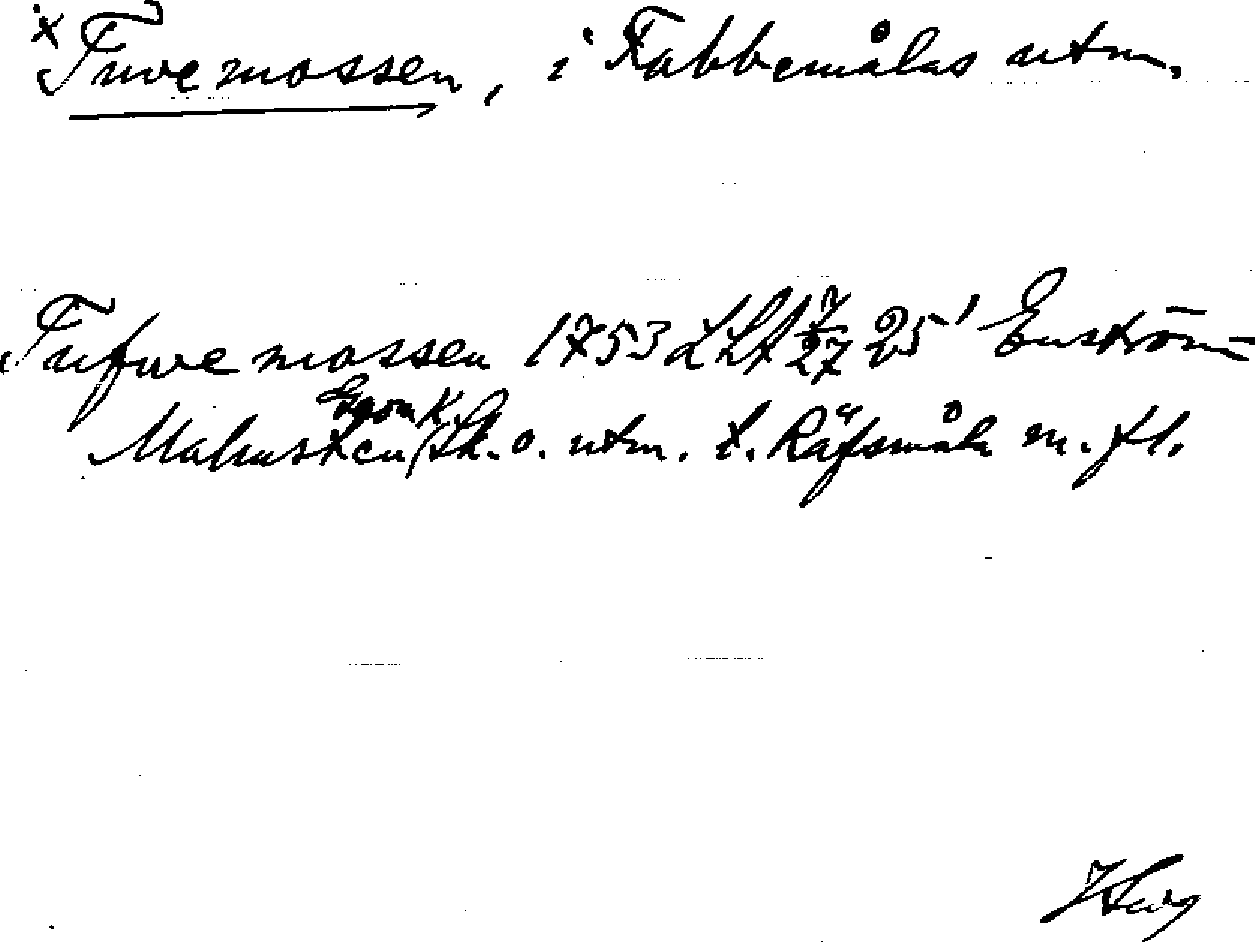 x Tuvemossen, i Fabbemålas utm.
Tufwe mossen 1753 LSA 7/27 25' Enström
Egon K.
Malmsten Sk. o. utm. t. Räfsmåla m. fl.